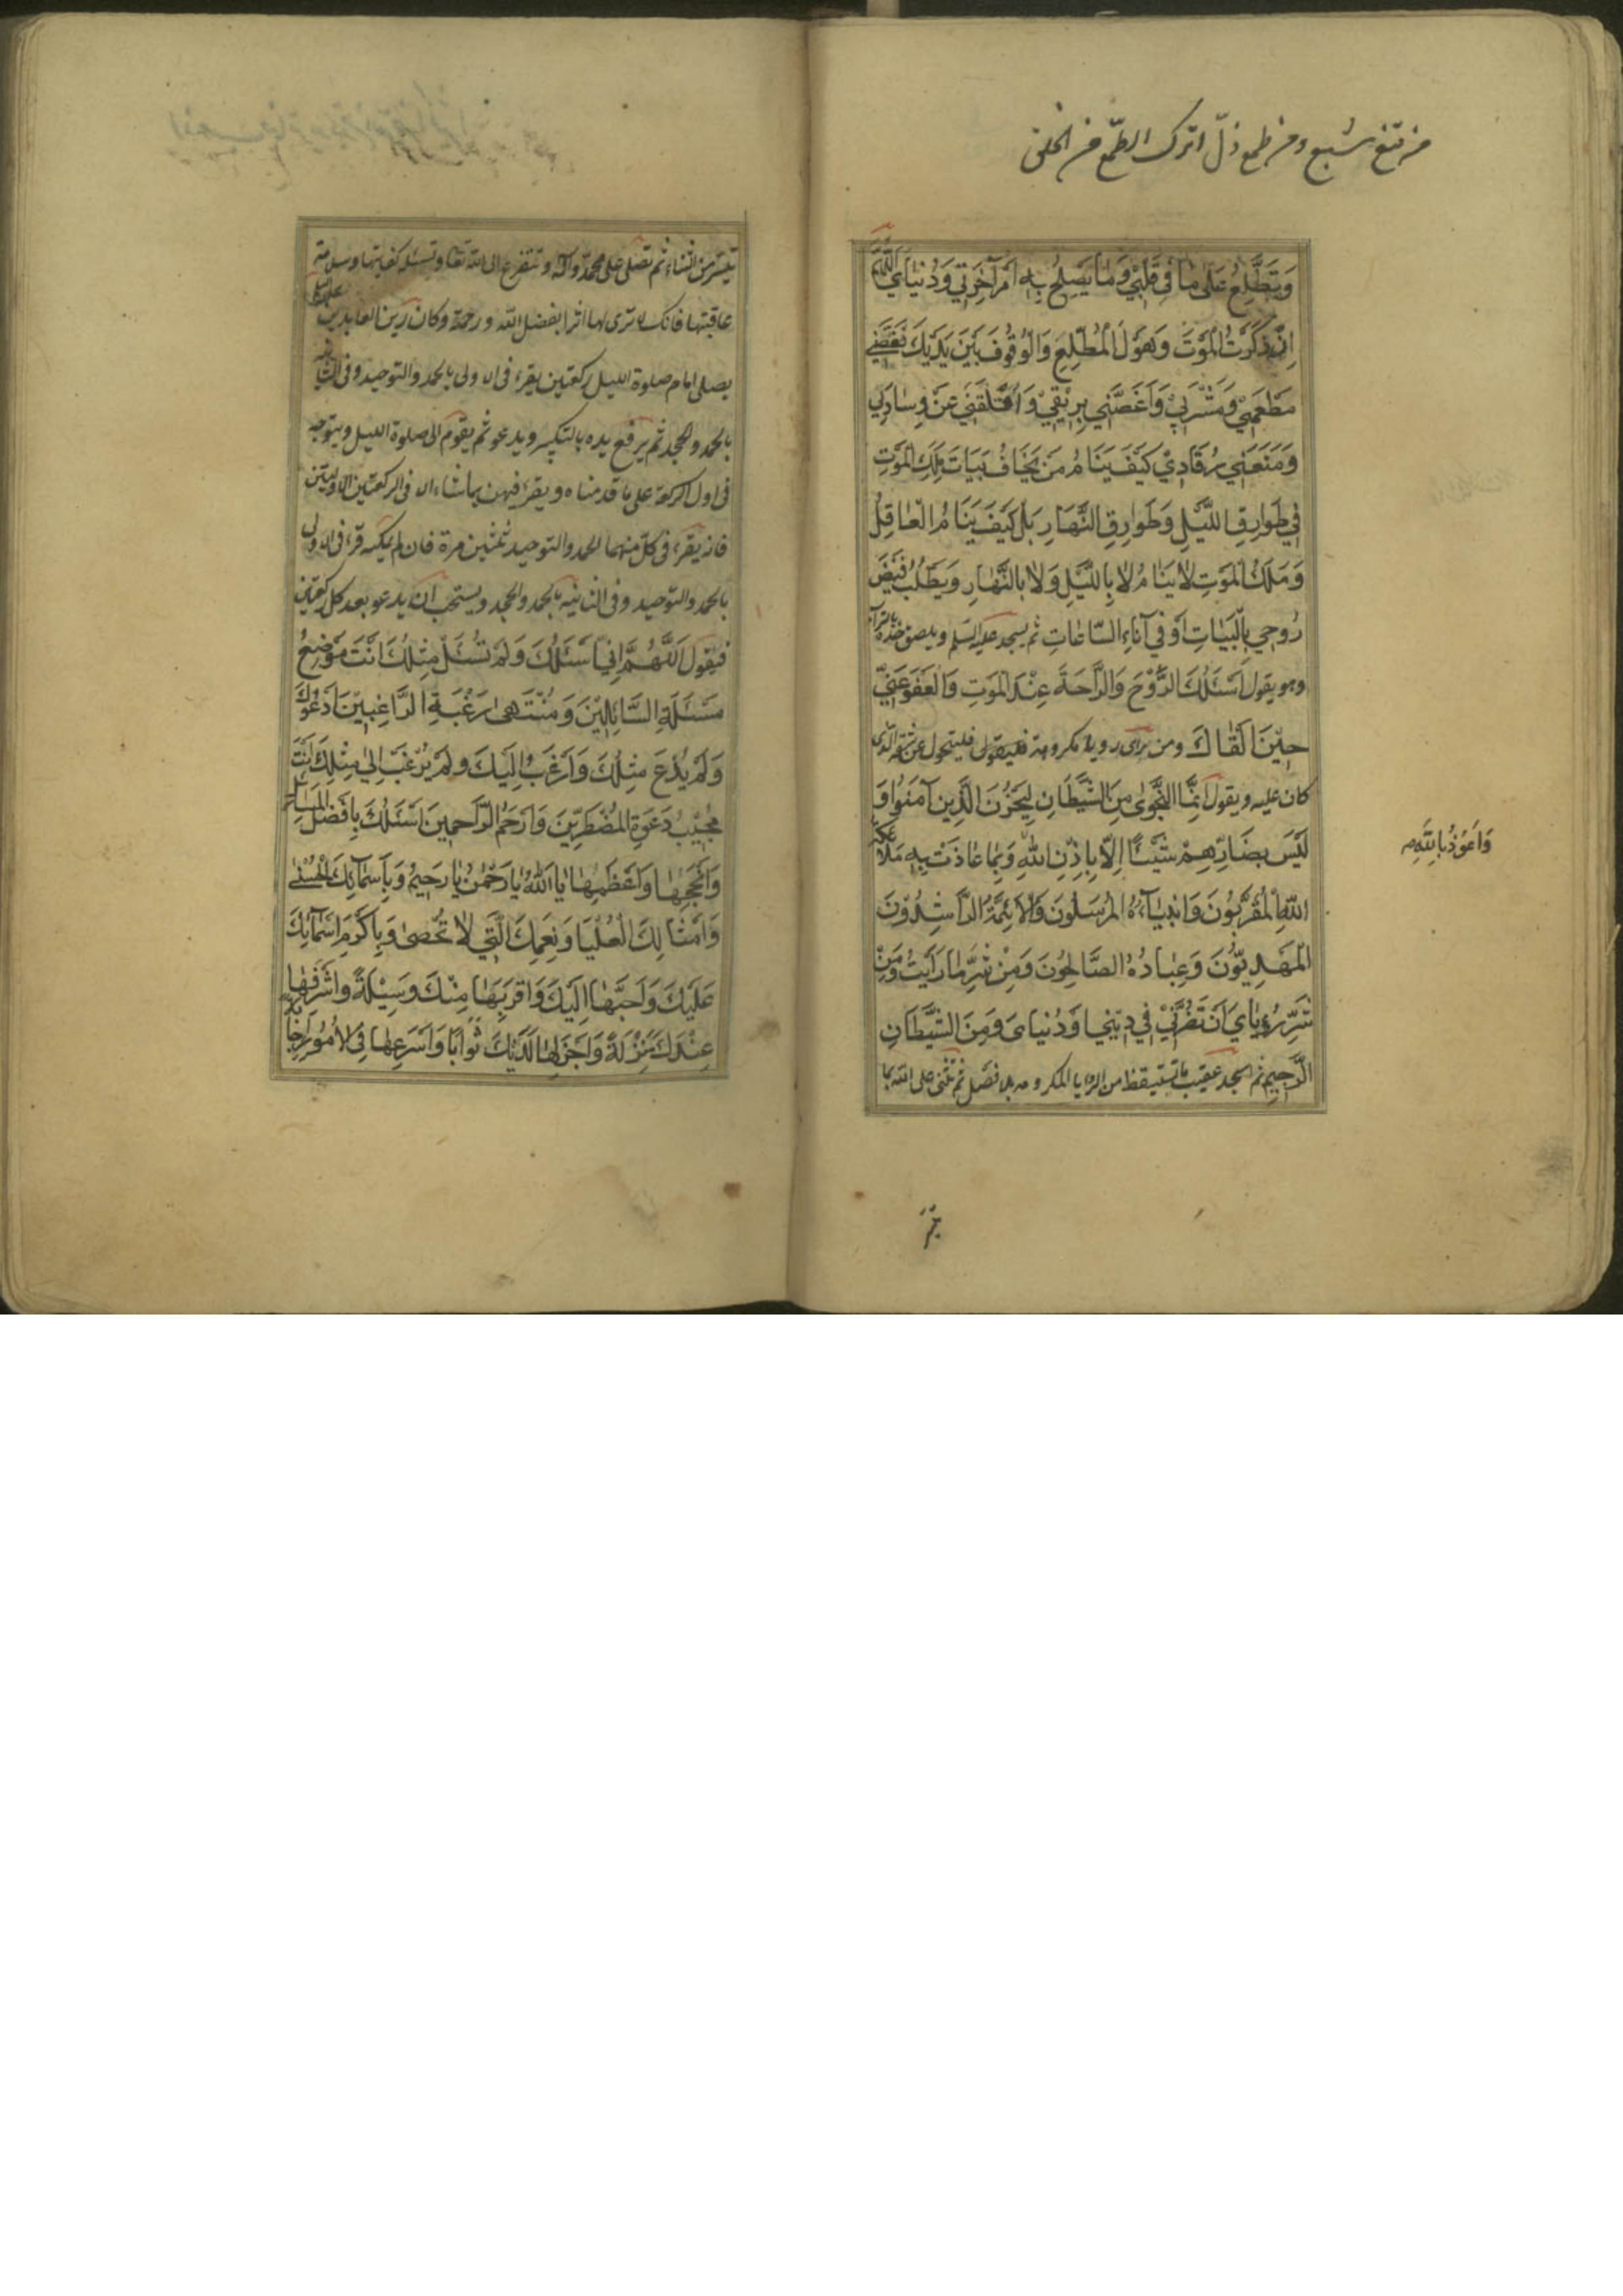 من قنع شبع ومن طمع ذلّ اترك الطّمع من الخلق
وَتَطَّلِعُ عَلىٰ ما فِي قَلْبِي وَمٰا يَصْلُحُ بِهِ اَمْرُ آخِرَتِي وَدُنْيٰايَ اَللّٰهُمَّ
اِنَّ ذِكْرَ الْمَوْتَ وَهَوْلَ الْمُطَّلَعِ وَالْوُقُوفَ بَيْنَ يَدَيْكَ نَغَّصَنِي
مَطْعَمِي وَمَشْرَبِي وَاَغَصَّنِي بِرِيْقِي وَاَقْلَقَنِي عَنْ وِسٰادِي
وَمَنَعَنِي رُقَادِيْ كَيْفَ يَنَامُ مَنْ يَخَافُ بَيَاتَ مَلَكِ الْمَوْتِ
فِي طَوارِقِ اللَّيْلِ وَطَوارِقِ النَّهَارِ بَلْ كَيْفَ يَنَامُ الْعٰاقِلُ
وَمَلَكُ الْمَوْتِ لاٰ يَنَامُ لاٰ بِاللَّيْلِ وَلاٰ بِالنَّهٰارِ وَيَطْلُبُ قَبْضَ
رُوْحِي بِالْبَيٰاتِ اَوْ فِي آنٰاءِ السّٰاعٰاتِ ثم يسجد عليه السلم ويلصق خدّه بالتراب
وهو يقول اَسْئَلُكَ الرَّوْحَ وَالرَّاحَةَ عِنْدَ الْمَوْتِ وَالْعَفْوَ عَنِّي
حِيْنَ اَلْقٰاكَ ومن رأى رويا مكروهة فليتحول عن شقه الّذى
كان عليه ويقول اِنَّمَا النَّجْوىٰ مِنَ الشَّيْطَانِ لِيَحْزُنَ الَّذِينَ آمَنُوا وَ
لَيْسَ بِضَارِّهِمْ شَيْئًا اِلاّٰ بِاِذْنِ اللّٰهِ وَبِمٰا عٰاذَتْ بِهِ مَلاٰئِكَةُ
وَاَعُوْذُ بِاللّٰهِ
اللّٰهِ الْمُقَرَّبُونَ وَاَنْبِيٰآؤُهُ الْمُرْسَلُونَ وَالْاَئِمَّةُ الرَّاشِدُوْنَ
الْمَهْدِيّوُنَ وَعِبٰادُهُ الصَّالِحُونَ وَمِنْ شَرِّ مٰا رَاَيْتُ وَمِنْ
شَرِّ رُؤْيٰايَ اَنْ تَضُرَّنِيْ فِي دِيْنِي وَدُنْيٰاىَ وَمِنَ الشَّيْطَانِ
الرَّجِيمِ ثم اسجد عقيب ما تستيقظ من الرويا المكروهه بلا فصل ثم تثنى على الله بما
تيسّر من الثناء ثم تصلى على محمّد وآله وتتضرع الى الله تعالى وتسئله كفايتها وسلامة
عاقبتها فانك لا ترى لها اثرا بفضل الله ورحمته وكان زين العابدين عليه السلم
يصلى امام صلوة الليل ركعتين يقرء فى الاولى بالحمد والتوحيد وفى الثانيه
بالحمد والجحد ثم يرفع يده بالتكبير ويدعو ثم يقوم الى صلوة الليل ويتوجه
فى اول الركعة على ما قدمناه ويقرء فيهن بما شاء الا فى الركعتين الاوليتين
فانه يقرء فى كلّ منهما الحمد والتوحيد ثلثين مرة فان لم يمكنه قرء فى الاولى
بالحمد والتوحيد وفى الثانيه بالحمد والجحد ويستحب ان يدعو بعد كل ركعتين
فيقول اَللّٰهُمَّ اِنِّي اَسْئَلُكَ وَلَمْ تُسْئَلْ مِثْلُكَ اَنْتَ مَوْضِعُ
مَسْئَلَةِ السَّائِلِيْنَ وَمُنْتَهىٰ رَغْبَةِ الرَّاغِبِيْنَ اَدْعُوْكَ
وَلَمْ يُدْعَ مِثْلُكَ وَاَرْغَبُ اِلَيْكَ وَلَمْ يُرْغَبْ اِلىٰ مِثْلِكَ اَنْتَ
مُجِيْبُ دَعْوَةِ الْمُضْطَرِّيْنَ وَاَرْحَمُ الرَّاحِمِينَ اَسْئَلُكَ بِاَفْضَلِ الْمَسٰائِلِ
وَاَنْجَحِهٰا وَاَعْظَمِهٰا يٰا اَللّٰهُ يٰا رَحْمٰنُ يٰا رَحِيمُ وَبِاَسْمٰائِكَ الْحُسْنىٰ
وَاَمْثٰالِكَ الْعُلْيَا وَنِعَمِكَ الَّتِي لاٰ تُحْصىٰ وَبِاَكْرَمِ اَسْمٰآئِكَ
عَلَيْكَ وَاَحَبِّهٰا اِلَيْكَ وَاَقْرَبِهَا مِنْكَ وَسِيْلَةً وَاَشْرَفِهٰا
عِنْدَكَ مَنْزِلَةً وَاَجْزَلِهٰا لَدَيْكَ ثَوٰابًا وَاَسْرَعِهٰا فِي الْاُمُورِ اِجٰابَةً